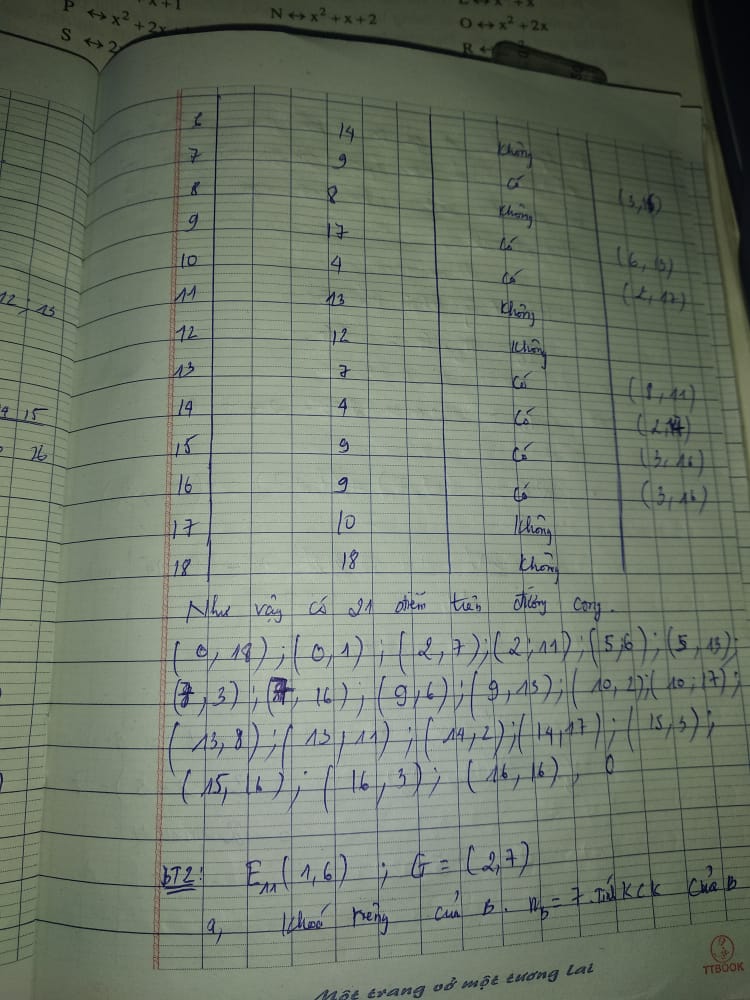 P ↔ x² + 2x
N ↔ x² + x + 2
O ↔ x² + 2x
S ↔ 2
R ↔
6 14 Không
7 9 Có (3,16)
8 8 Không
9 17 Có (6,13)
10 4 Có (2,17)
11 13 Không
12 12 Không
13 7 Có (8,11)
14 4 Có (2,17)
15 9 Có (3,16)
16 9 Có (3,16)
17 10 Không
18 18 Không
Như vậy có 21 điểm trên đường cong.
(0,18); (0,1); (2,7); (2;11); (5,6); (5,13);
(7,3); (7,16); (9,6); (9,13); (10,2); (10;17);
(13,8); (13,11); (14,2); (14,17); (15,3);
(15,16); (16,3); (16,16), O
BT2: E₁₁(1,6) ; G = (2,7)
a, Khoá riêng của B. n_B = 7. Tính KCK của B
Một trang vở một tương lai
TTBOOK
12, 13
15
26